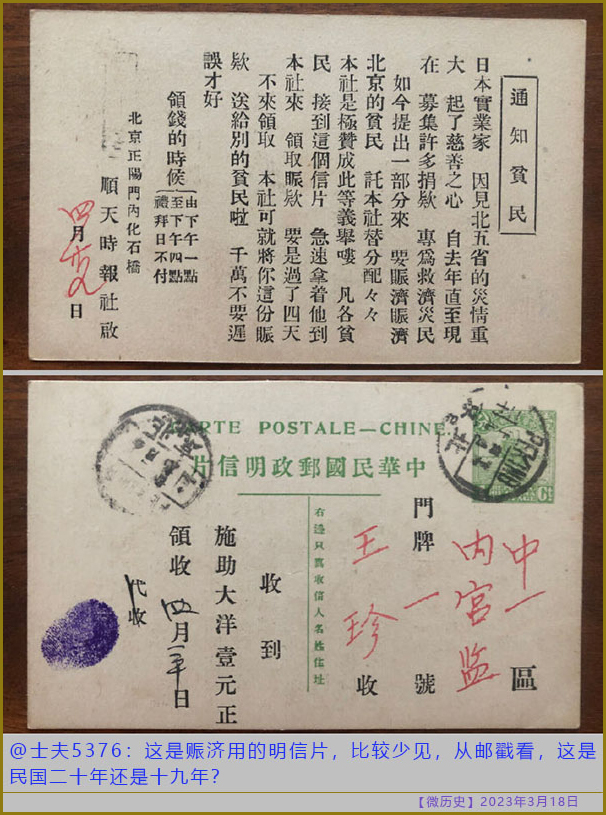 通知貧民
日本實業家 因見北五省的災情重
大 起了慈善之心 自去年直至現
在 募集許多捐欵 專爲救濟災民
如今提出一部分來 要賑濟賑濟
北京的貧民 託本社替分配々々
本社是極贊成此等義舉嘍 凡各貧
民 接到這個信片 急速拿着他到
本社來 領取賑欵 要是過了四天
不來領取 本社可就將你這份賑
欵 送給別的貧民啦 千萬不要遲
誤才好
領錢的時候
由下午一點
至下午四點
禮拜日不付
北京正陽門內化石橋
順天時報社啟
四月 日
CARTE POSTALE—CHINE
中華民國郵政明信片
PEKING
北京
中一區
內宮监
門牌一號
王珍收
右邊只寫收信人名姓住址
收到
施助大洋壹元正
領收 四月 日
代收
@士夫5376：这是赈济用的明信片，比较少见，从邮戳看，这是
民国二十年还是十九年？
【微历史】2023年3月18日